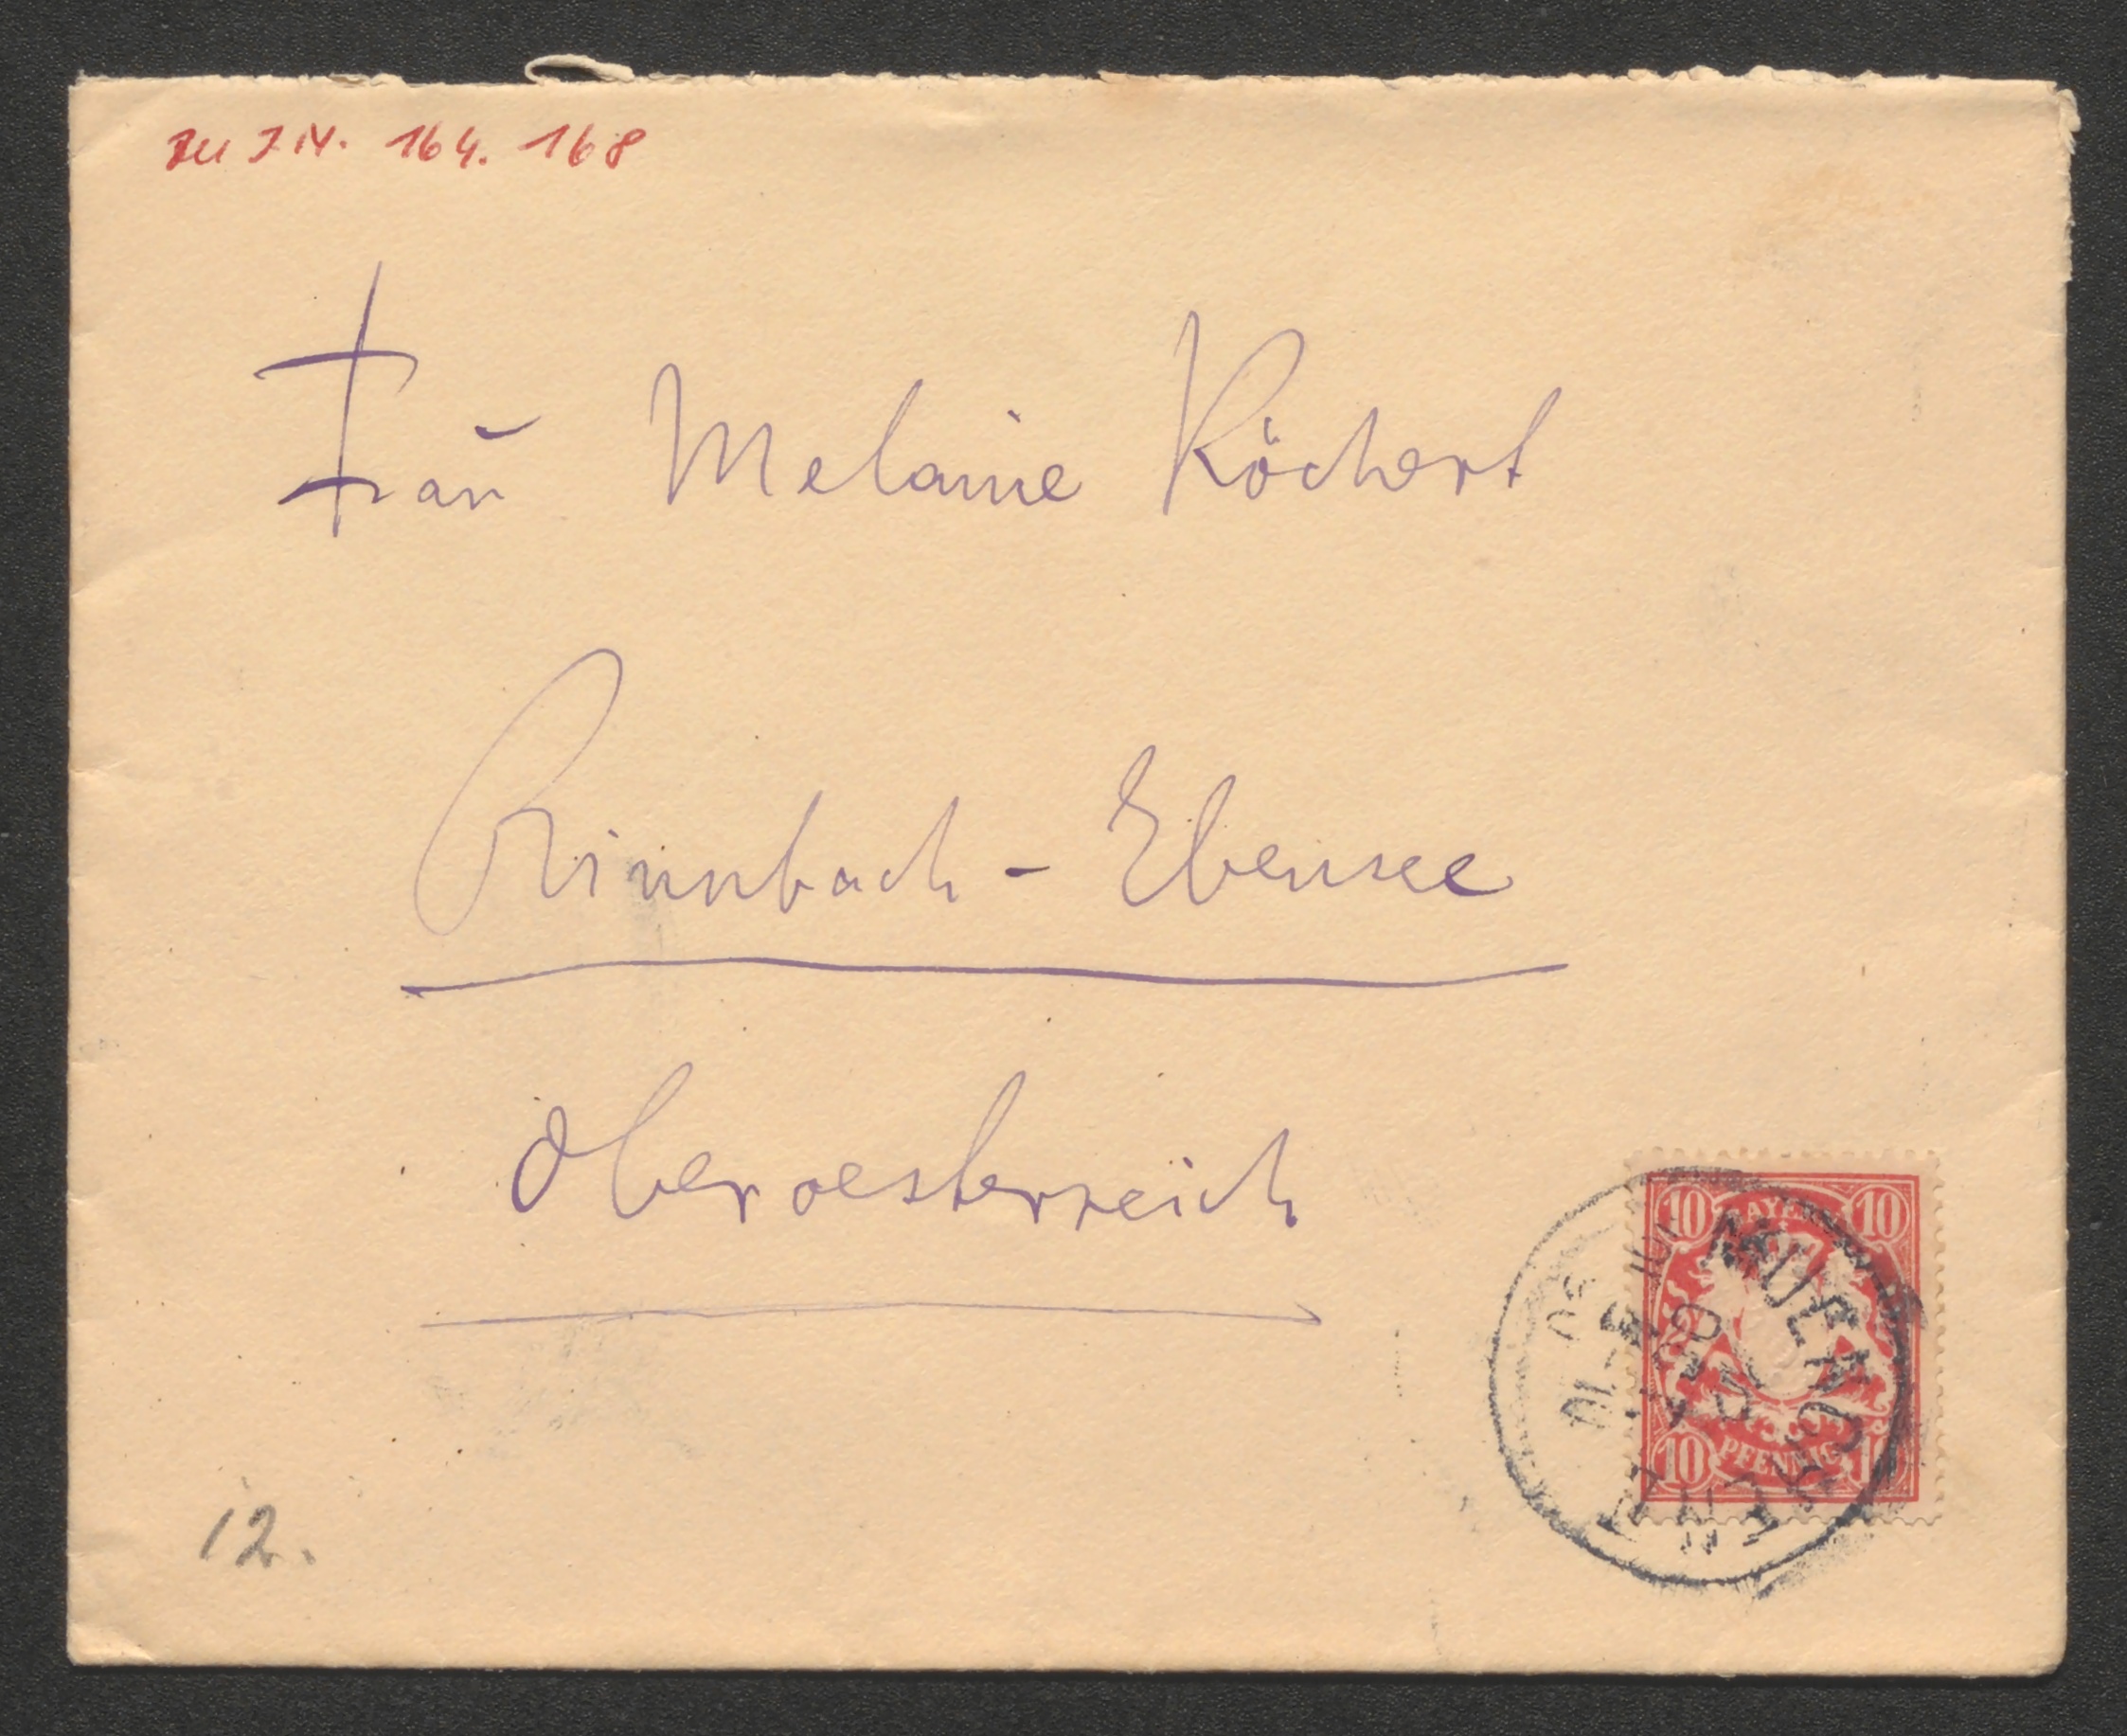 zu I.N. 164.168
Frau Melanie Köchert
Rinnbach - Ebensee
Oberoesterreich
12.
10 BAYERN 10
10 PFENNIG 10
MUENCHEN